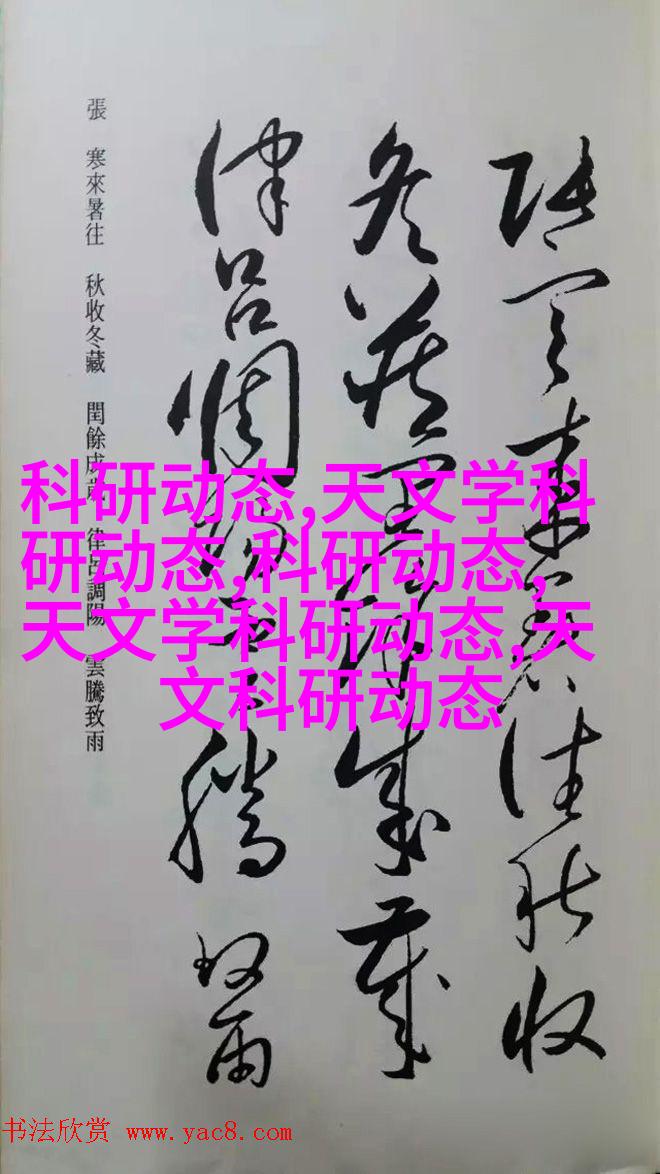 張寒來暑往秋收
冬藏閏餘成歲
律呂調陽雲騰致雨
張 寒來暑往 秋收冬藏 閏餘成歲 律呂調陽 雲騰致雨
科研动态,天文学科
研动态,科研动态,
天文学科研动态,天
文科研动态
书法欣赏 www.yac8.com